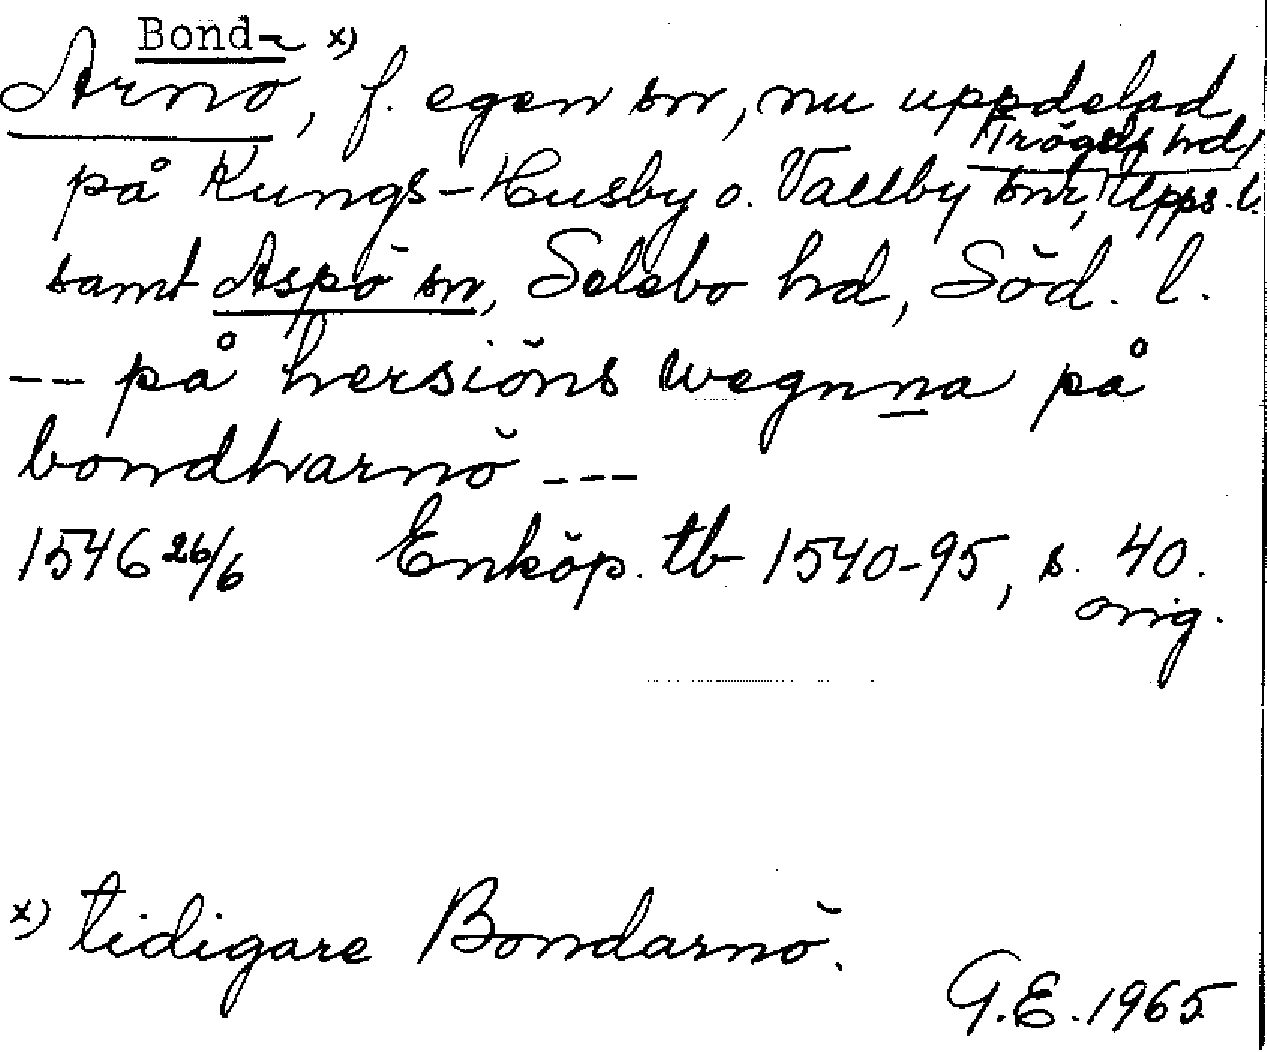 Bond- x)
Arnö, f. egen sn, nu uppdelad
Trögds hd,
på Kungs-Husby o. Vallby snr, Upps. l.
samt Aspö sn, Selebo hd, Söd. l.
--- på hersiöns wegnna på
bondharnö ---
1546 26/6 Enköp. tb 1540-95, s. 40.
orig.
x) tidigare Bondarnö.
G.E. 1965